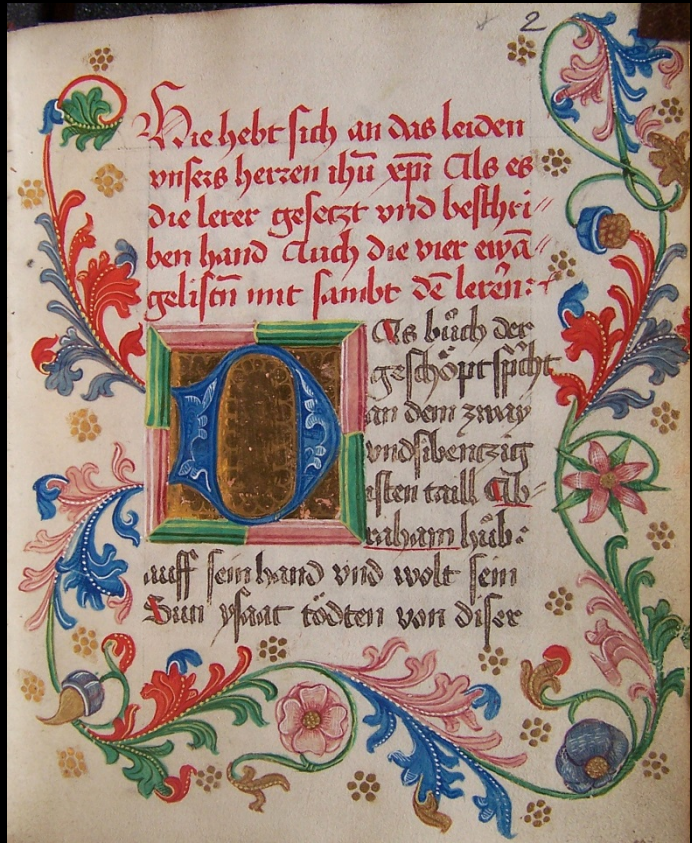 2
Hie hebt sich an das leiden
vnsers herren ihū xp̄i Als es
die lerer gesetzt vnd beschri〃
ben hand Auch die vier ewā〃
gelistñ mit sambt dē lerern:
DAs bůch der
geschöpf spricht
an dem zway
vndsibentzig
isten taill Ab〃
raham hůb:
auff sein hand vnd wolt sein
Sun ysaac tödten von diser